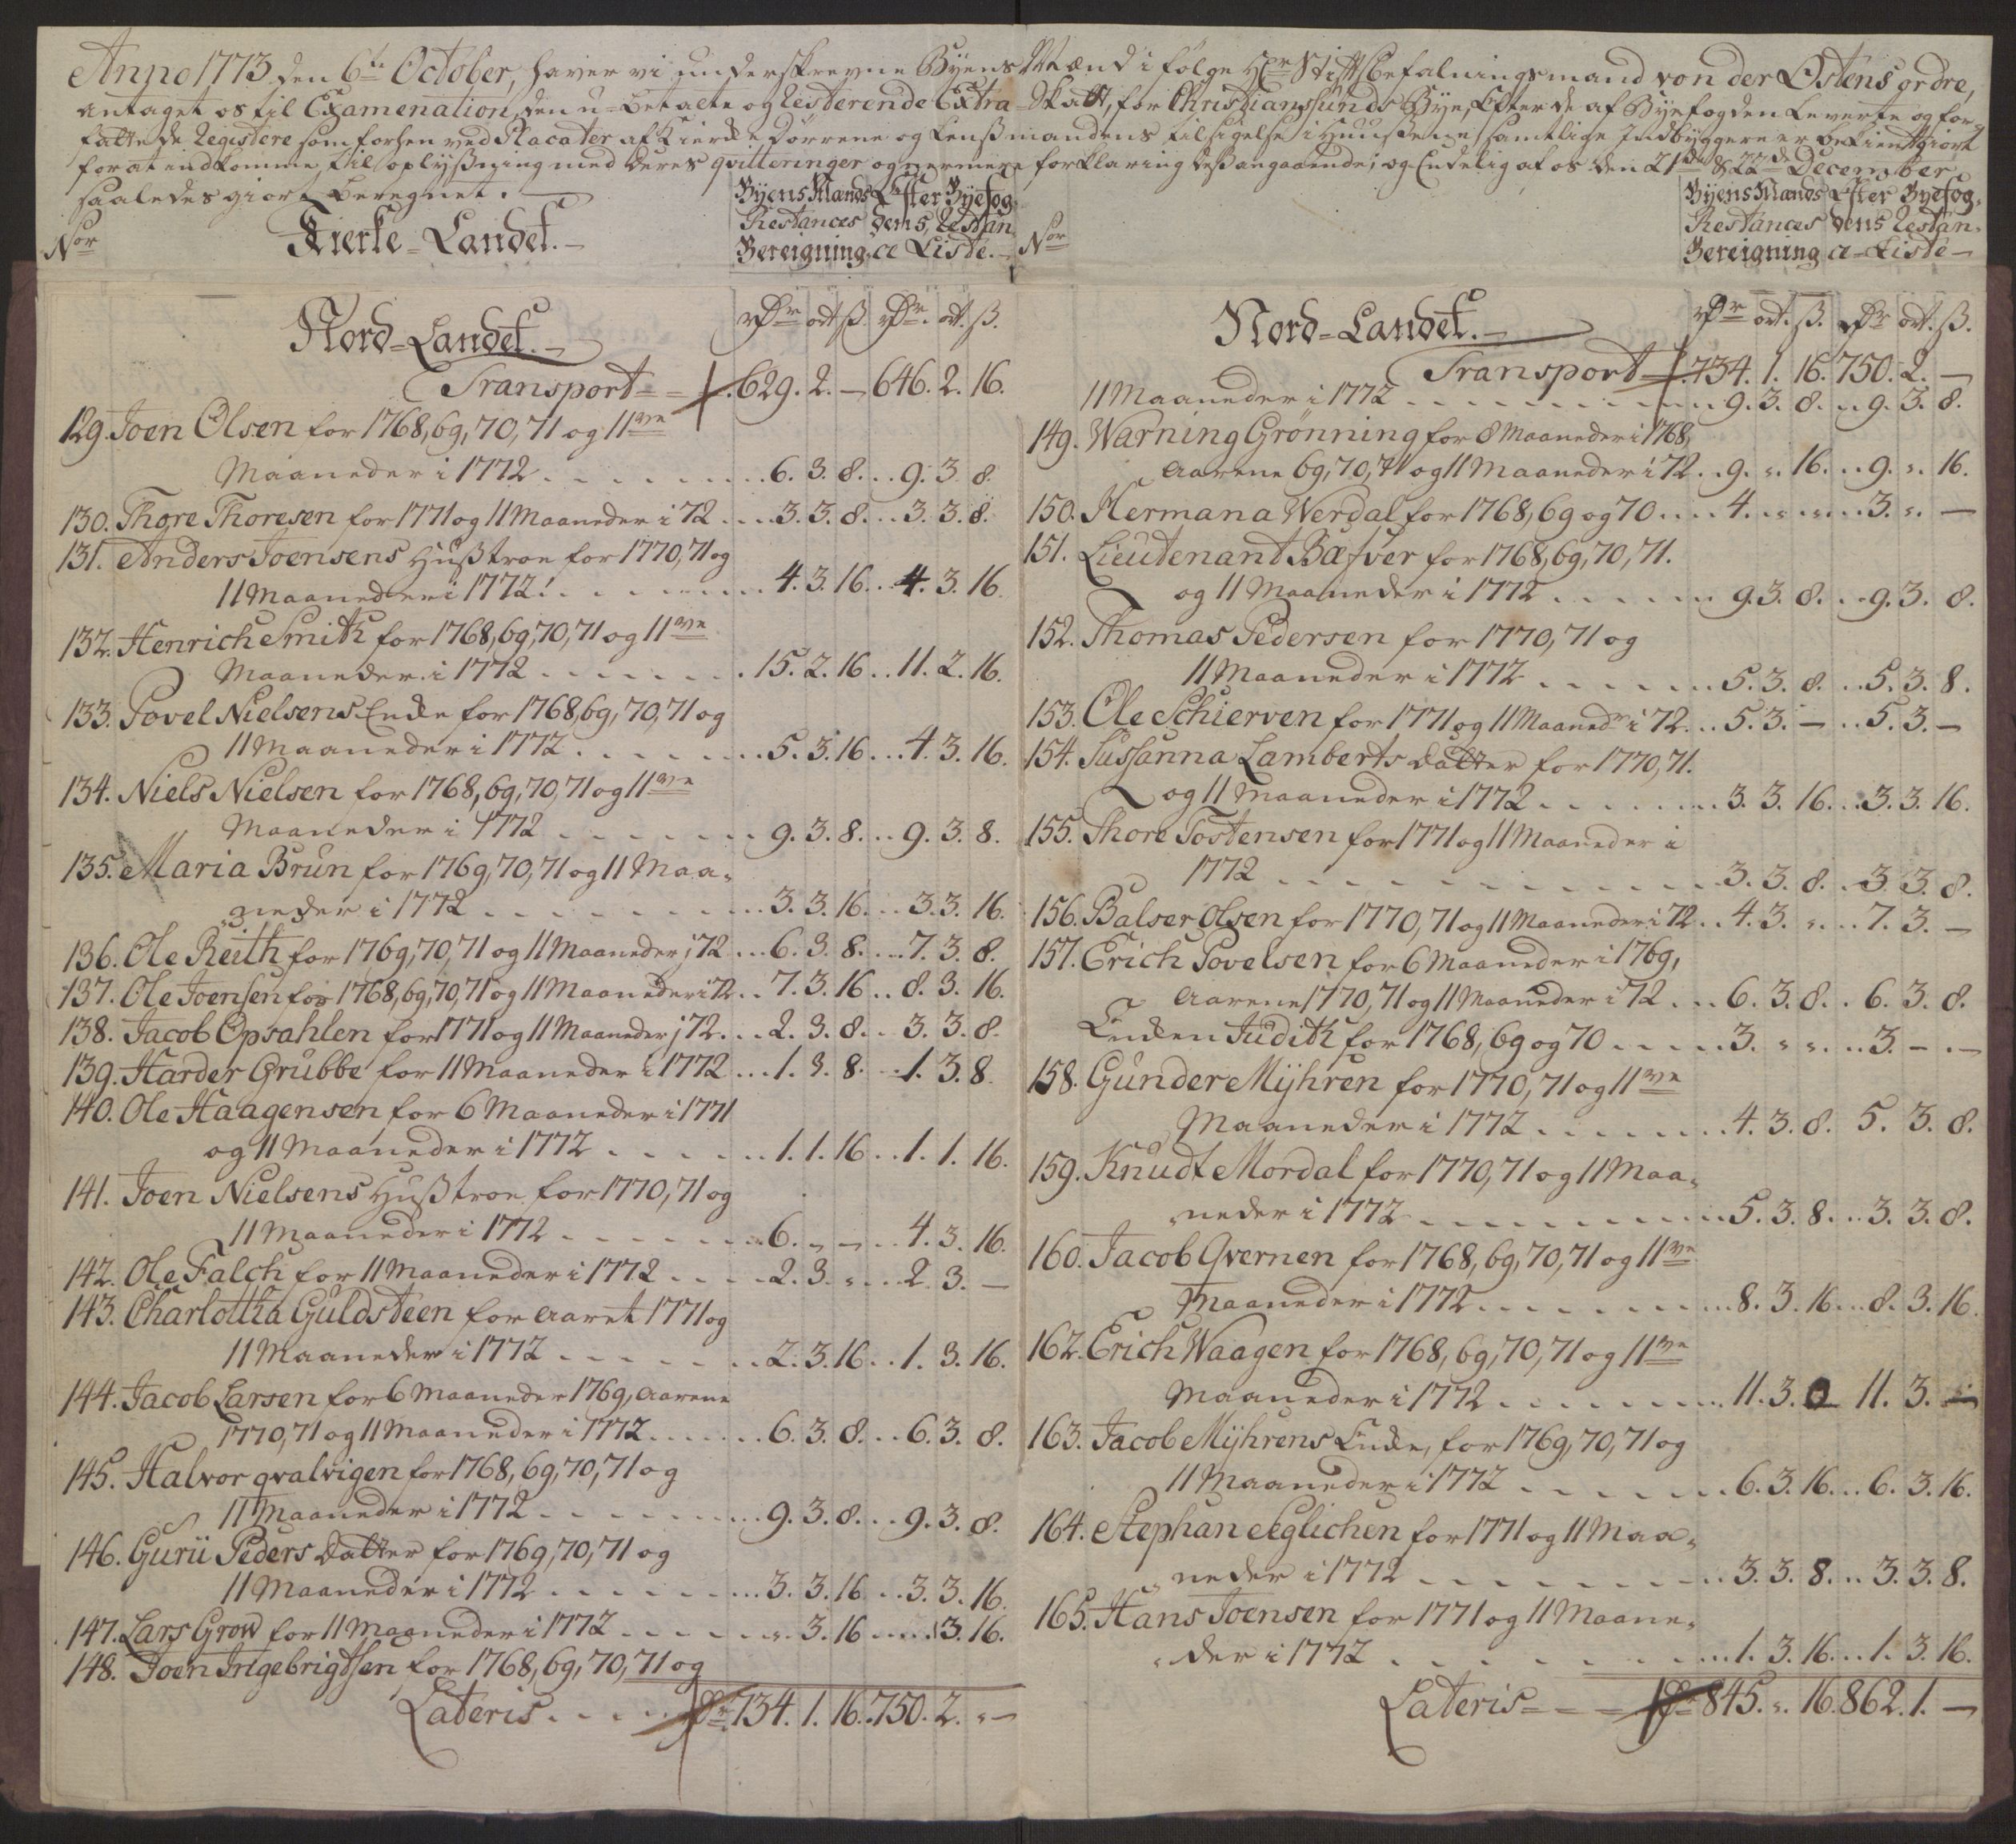 Anno 1773 den 6te October, haver vi underskrevne Byens Mænd i følge Hr Stiftsbefalningsmand von der Østens ordre,
antaget os til Examenation, den u-betalte og Resterende Extra-Skatt, for Christiansunds Bye, Efter de af Byefogden Leverte og for-
fattede Registere som forhen ved Placater af Kierke Dørrene og Lensmandens tilsigelse i Huusene samtlige Indbyggere er bekientgiort
for at indkomme til oplysning med deres qvitteringer og nermere forklaring des angaaende; og Endelig af os den 21de & 22de December
saaledes giort beregnet.
Nor
Kierke-Landet.
Byens Mænds Restances Bereigning
Efter Byefogdens Restance Liste.
Nor
Byens Mænds Restances Bereigning
Efter Byefogdens Restance-Liste
Nord-Landet.
rdr ort ß. rdr. ort. ß.
Transport 629. 2. – 646. 2. 16.
129. Joen Olsen for 1768, 69, 70, 71 og 11ve
Maaneder i 1772 6. 3. 8. 9. 3. 8.
130. Thore Thoresen for 1771 og 11 Maaneder i 72 3. 3. 8. 3. 3. 8.
131. Anders Joensens Hustroe for 1770, 71 og
11 Maaneder i 1772. 4. 3. 16. 4. 3. 16.
132. Henrich Smith for 1768, 69, 70, 71 og 11ve
Maaneder i 1772 15. 2. 16. 11. 2. 16.
133. Povel Nielsens Enke for 1768, 69, 70, 71 og
11 Maaneder i 1772 5. 3. 16. 4. 3. 16.
134. Niels Nielsen for 1768, 69, 70, 71 og 11ve
Maaneder i 1772 9. 3. 8. 9. 3. 8.
135. Maria Brun for 1769, 70, 71 og 11 Maa-
neder i 1772 3. 3. 16. 3. 3. 16.
136. Ole Reith for 1769, 70, 71 og 11 Maaneder i 72 6. 3. 8. 7. 3. 8.
137. Ole Joensen for 1768, 69, 70, 71 og 11 Maaneder i 72 7. 3. 16. 8. 3. 16.
138. Jacob Opsahlen for 1771 og 11 Maaneder i 72. 2. 3. 8. 3. 3. 8.
139. Harder Grubbe for 11 Maaneder i 1772 1. 3. 8. 1. 3. 8.
140. Ole Haagensen for 6 Maaneder i 1771
og 11 Maaneder i 1772 1. 1. 16. 1. 1. 16.
141. Joen Nielsens Hustroe for 1770, 71 og
11 Maaneder i 1772 6. – – 4. 3. 16.
142. Ole Falch for 11 Maaneder i 1772 2. 3. „ 2. 3. –
143. Charlotha Guldsteen for Aaret 1771 og
11 Maaneder i 1772 2. 3. 16. 1. 3. 16.
144. Jacob Larsen for 6 Maaneder 1769, Aarene
1770, 71 og 11 Maaneder i 1772 6. 3. 8. 6. 3. 8.
145. Halvor qvalvigen for 1768, 69, 70, 71 og
11 Maaneder i 1772 9. 3. 8. 9. 3. 8.
146. Gurii Peders Datter for 1769, 70, 71 og
11 Maaneder i 1772 3. 3. 16. 3. 3. 16.
147. Lars Grow for 11 Maaneder i 1772 „ 3. 16 „ 3. 16.
148. Joen Ingebrigtsen for 1768, 69, 70, 71 og
Lateris rdr 734. 1. 16. 750. 2. „ –
Nord-Landet.
rdr ort. ß. rdr ort. ß.
Transport 734. 1. 16. 750. 2. –
11 Maaneder i 1772 9. 3. 8. 9. 3. 8.
149. Warning Grønning for 8 Maaneder i 1768,
Aarene 69, 70, 71 og 11 Maaneder i 72 9. „ 16. 9. „ 16.
150. Hermana Werdal for 1768, 69 og 70 4. „ „ 3. „ –
151. Lieutenant Bæfver for 1768, 69, 70, 71.
og 11 Maaneder i 1772 9. 3. 8. 9. 3. 8.
152. Thomas Pedersen for 1770, 71 og
11 Maaneder i 1772 5. 3. 8. 5. 3. 8.
153. Ole Schierven for 1771 og 11 Maanedr i 72 5. 3. – 5. 3. –
154. Sussanna Lamberts datter for 1770, 71.
og 11 Maaneder i 1772 3. 3. 16. 3. 3. 16.
155. Thore Tostensen for 1771 og 11 Maaneder i
1772 3. 3. 8. 3. 3. 8.
156. Balser Olsen for 1770, 71 og 11 Maaneder i 72 4. 3. „ 7. 3. –
157. Erich Povelsen for 6 Maaneder i 1769,
Aarene 1770, 71 og 11 Maaneder i 72 6. 3. 8. 6. 3. 8.
Enken Judith for 1768, 69 og 70 3. „ „ 3. – –
158. Gunder Mÿhren for 1770, 71 og 11ve
Maaneder i 1772 4. 3. 8. 5. 3. 8.
159. Knudt Mordal for 1770, 71 og 11 Maa-
neder i 1772 5. 3. 8. 3. 3. 8.
160. Jacob Qvernen for 1768, 69, 70, 71 og 11ve
Maaneder i 1772 8. 3. 16. 8. 3. 16.
162. Erich Waagen for 1768, 69, 70, 71 og 11ve
Maaneder i 1772 11. 3. 0 11. 3. –
163. Jacob Mÿhrens Enke, for 1769, 70, 71 og
11 Maaneder i 1772 6. 3. 16. 6. 3. 16.
164. Stephan Eeglichen for 1771 og 11 Maa-
neder i 1772 3. 3. 8. 3. 3. 8.
165. Hans Joensen for 1771 og 11 Maane-
der i 1772 1. 3. 16. 1. 3. 16.
Lateris rdr 845. „ 16. 862. 1. –